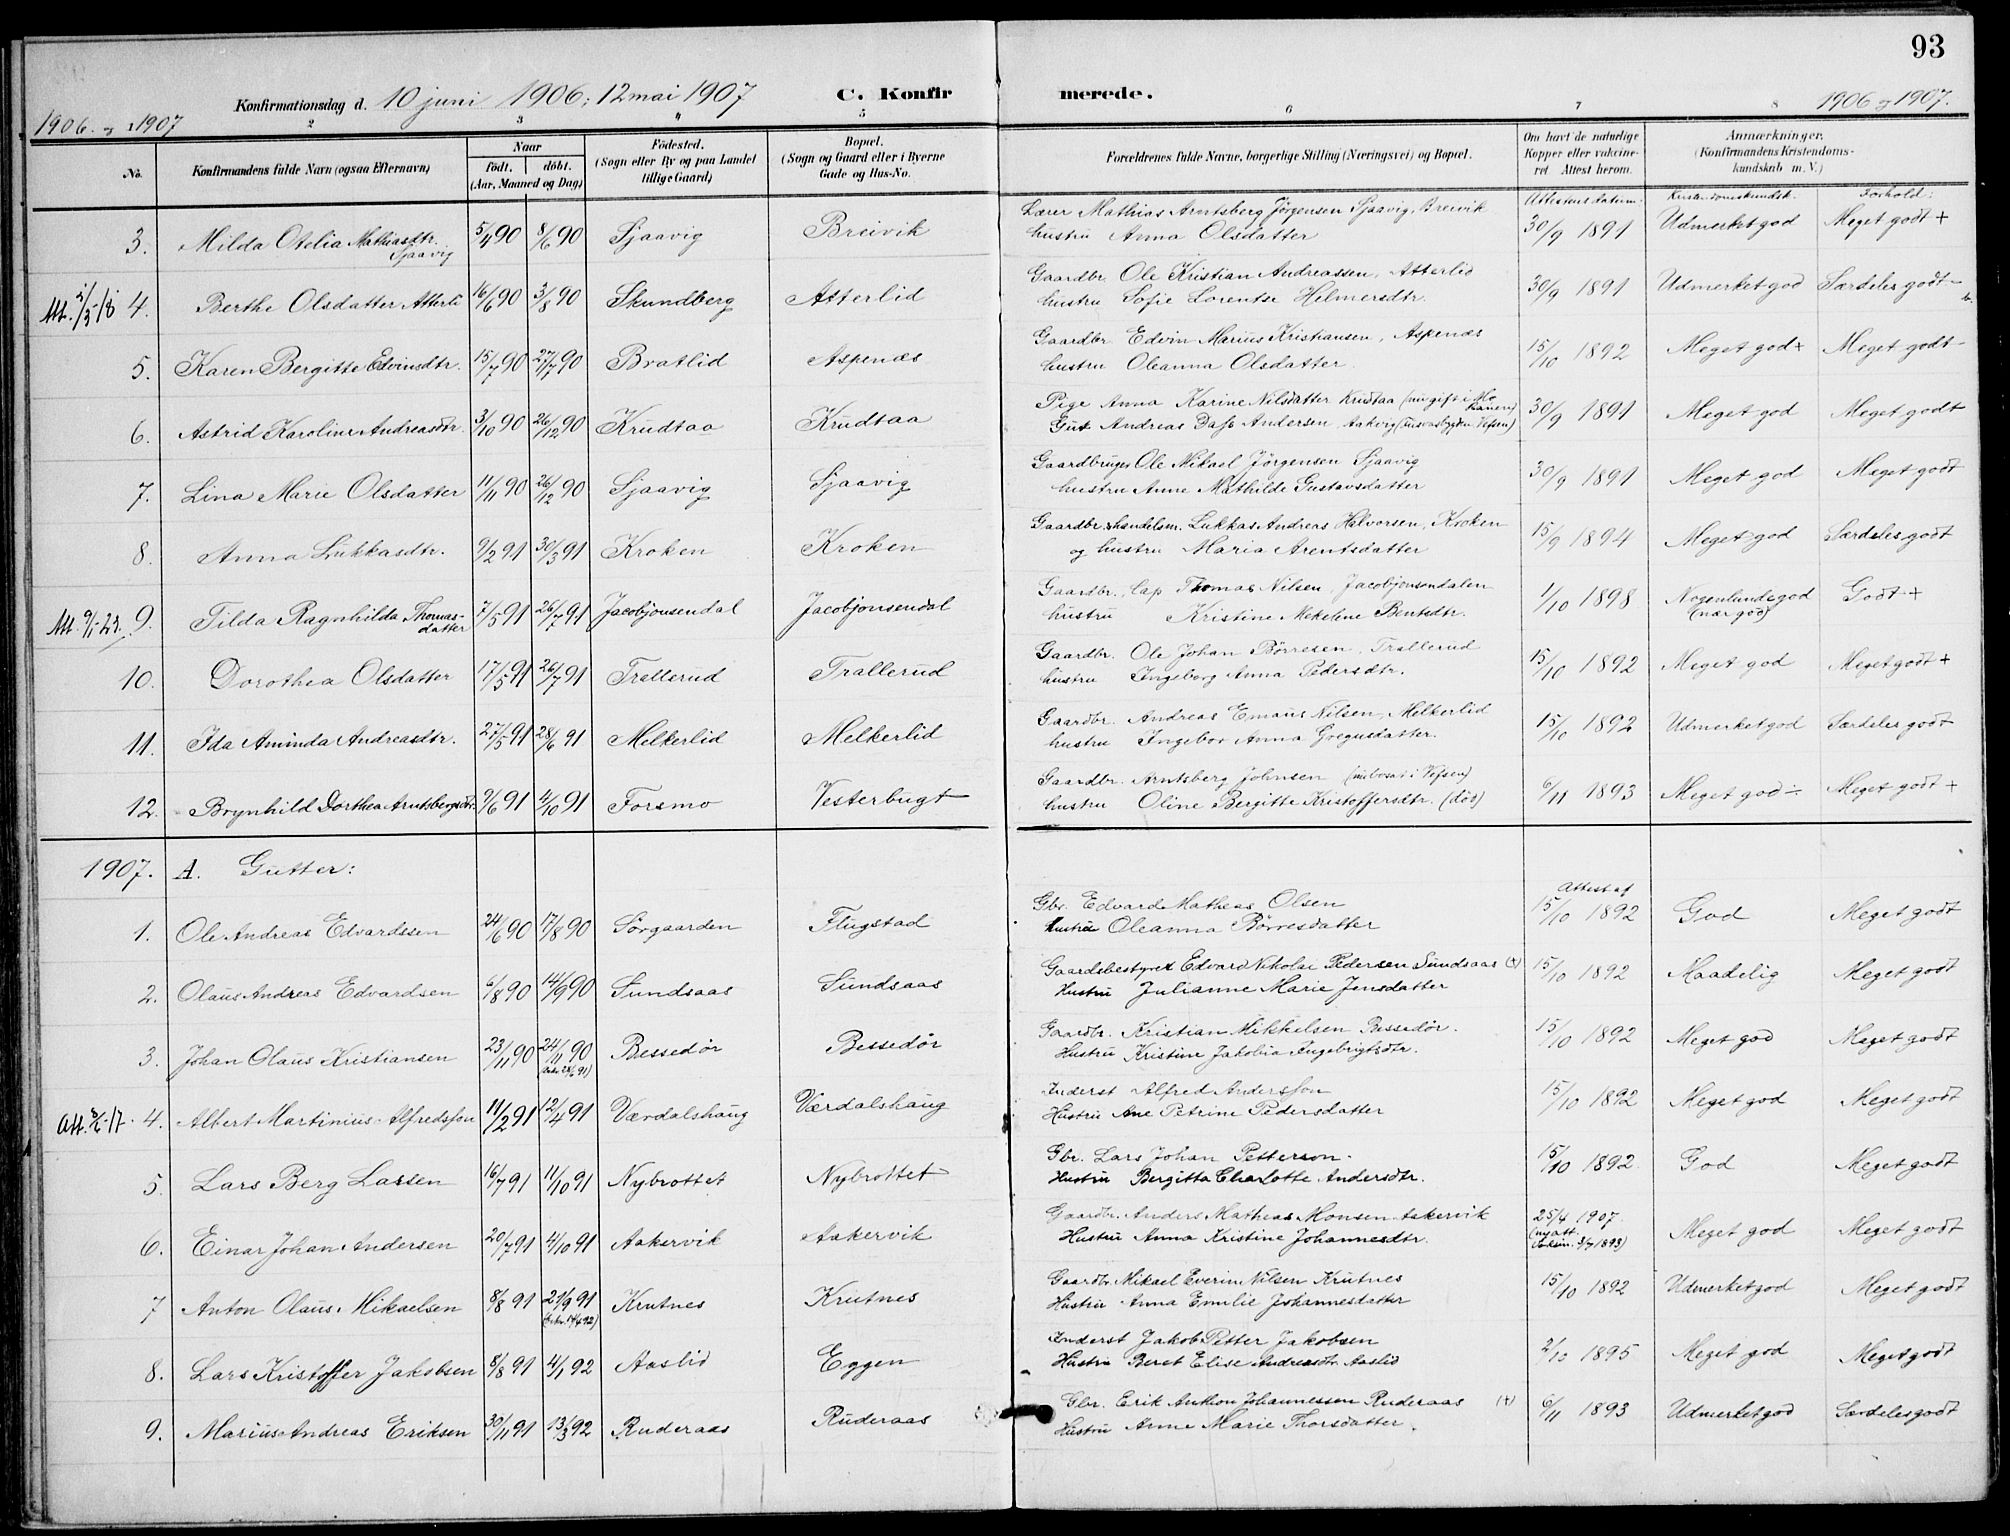 93
Konfirmationsdag d. 10 juni 1906; 12 mai 1907 C. Konfirmerede.
1906 og 1907 1906 og 1907.
1 2 3 4 5 6 7 8
No. Konfirmandens fulde Navn (ogsaa Efternavn) Naar födt. döbt. (Aar, Maaned og Dag) Födested. (Sogn eller By og paa Landet tillige Gaard) Bopæl. (Sogn og Gaard eller i Byerne Gade og Hus-No. Forældrenes fulde Navne, borgerlige Stilling (Næringsvei) og Bopæl. Om havt de naturlige Kopper eller vaccineret. Attest herom. Anmærkninger. (Konfirmandens Kristendomskundskab m. V.)
Attestens datum. Kristendomskundsk. Forhold:
3. Milda Otelia Mathiasdtr. Sjaavig 5/4 90 8/6 90 Sjaavig Breivik Lærer Mathias Arntsberg Jörgensen Sjaavig, Breivik 30/9 1891 Udmerket god Meget godt +
hustru Anna Olsdatter
4. Berthe Olsdatter Atterli 16/6 90 3/8 90 Skundberg Atterlid Gaardbr. Ole Kristian Andreassen, Atterlid 30/9 1891 Udmerket god Særdeles godt -
hustru Sofie Lorentse Helmersdtr.
5. Karen Bergitte Edvinsdtr. 15/7 90 27/7 90 Bratlid Aspenæs Gaardbr. Edvin Marius Kristiansen, Aspenæs 15/10 1892 Meget god + Meget godt -
hustru Oleanna Olsdatter.
6. Astrid Karoline Andreasdtr. 3/10 90 26/12 90 Krudtaa Krudtaa Pige Anna Karine Nilsdatter Krudtaa 30/9 1891 Meget god Meget godt
Gut Andreas Dass Andersen, Aakvig
7. Lina Marie Olsdatter 11/11 90 26/12 90 Sjaavig Sjaavig Gaardbruger Ole Mikael Jörgensen Sjaavig 30/9 1891 Meget god Meget godt
hustru Anne Mathilde Gustavsdatter
8. Anna Lukkasdtr. 9/2 91 30/3 91 Kroken Kroken Gaardbr. & handelsm. Lukkas Andreas Halvorsen, Kroken 15/9 1894 Meget god Særdeles godt
og hustru Maria Arentsdatter
Att. 9/1-23. 9. Tilda Ragnhilda Thomasdatter 7/5 91 26/7 91 Jacobjonsendal Jacobjonsendal Gaardbr., Lap Thomas Nilsen, Jacobjonsendalen 1/10 1898 Nogenlunde god (nær god) Godt +
hustru Kristine Mekelene Bentsdtr.
10. Dorothea Olsdatter 17/5 91 26/7 91 Trallerud Trallerud Gaardbr. Ole Johan Börresen, Trallerud 15/10 1892 Meget god Meget godt +
hustru Ingeborg Anna Pedersdtr.
11. Ida Aminda Andreasdtr. 27/5 91 28/6 91 Melkerlid Melkerlid Gaardbr. Andreas Emaus Nilsen, Melkerlid 15/10 1892 Udmerket god Særdeles godt
hustru Ingebor Anna Gregusdatter.
12. Brynhild Dorthea Arntsbergsdtr. 9/6 91 4/10 91 Forsmo Vesterbugt Gaardbr. Arntsberg Johnsen (nu bosat i Vefsen) 6/11 1893 Meget god ÷ Meget godt +
hustru Oline Bergitte Kristoffersdtr. (död)
1907. A. Gutter:
1. Ole Andreas Edvardsen 24/6 90 17/8 90 Sörgaarden Flugstad Gbr. Edvard Matheas Olsen Attest af 15/10 1892 God Meget godt
Hustru Oleanna Börresdatter
2. Olaus Andreas Edvardsen 6/8 90 14/9 90 Sundsaas Sundsaas Gaardsbestyrer Edvard Nikolai Pedersen Sundsaas (+) 15/10 1892 Maadelig Meget godt
Hustru Julianne Marie Jensdatter
3. Johan Olaus Kristiansen 23/11 90 24/11 90 Bessedör Bessedör Gaardbr. Kristian Mikkelsen Bessedör. 15/10 1892 Meget god Meget godt
Hustru Kristine Jakobia Ingebrigtsdtr.
4. Albert Martinius Alfredsson 11/2 91 12/4 91 Værdalshaug Værdalshaug Inderst Alfred Andersson 15/10 1892 Meget god Meget godt
Hustru Ane Petrine Pedersdatter
5. Lars Berg Larsen 16/7 91 11/10 91 Nybrottet Nybrottet Gbr. Lars Johan Petterson. 15/10 1892. God Meget godt
Hustru Bergitta Charlotte Andersdtr.
6. Einar Johan Andersen 20/7 91 4/10 91 Aakervik Aakervik Gaardbr. Anders Mathias Monsen Aakervik 25/4 1907. Meget god Meget godt
Hustru Anna Kristine Johannesdtr.
7 Anton Olaus Mikaelsen 8/8 91 29/9 91 Krutnes Krutnes Gaardbr. Mikael Everin Nilsen Krutnes 15/10 1892 Udmerket god Meget godt
Hustru Anna Emilie Johannesdatter
8. Lars Kristoffer Jakobsen 8/8 91 4/1 92 Aaslid Eggen Inderst Jakob Petter Jakobsen 2/10 1895 Meget god Meget godt
Hustru Beret Elise Andreasdtr. Aaslid
9. Marius Andreas Eriksen 30/11 91 13/3 92 Ruderaas Ruderaas Gbr. Erik Anthon Johannessen Ruderaas (+) 6/11 1893 Udmerket god Særdeles godt
Hustru Anne Marie Thorsdatter.